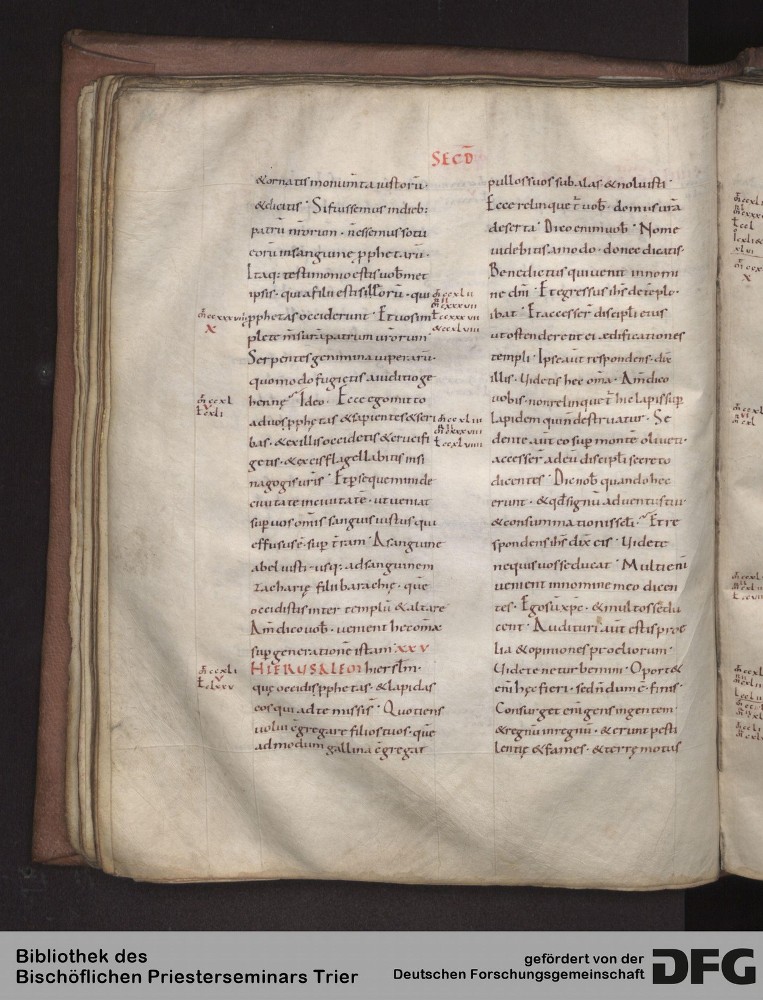 SECD̄
& ornatis monum̄ta iustorū·
& dicitis· Si fuissemus in dieb:
patrū nr̄orum· n̄ essemus sotii
eorū in sanguine ꝓphetarū·
Itaq: testimonio estis uob met
ipsis· quia filii estis illorū· qui
ꝓphetas occiderunt· Et uos im
plete m̄surā patrum ur̄orum·
Serpentes genimina uiperarū·
quomodo fugietis a iuditio ge
hennę· Ideo· Ecce ego mitto
ad uos ꝓphętas & sapientes & scri
bas· & ex illis occidetis & crucifi
getis· & ex eis flagellabitis in si
nagogis uris· Et ꝑsequemini de
ciuitate in ciuitatē· ut ueniat
sup uos om̄is sanguis iustus qui
effusus ē· sup t̄ram· A sanguine
abel iusti· usq: ad sanguinem
zacharię filii barachię· quē
occidistis inter templū & altare
Am̄ dico uob· uenient hec om̄ia
sup generationē istam· XXV
HIERUSALEM hierslm̄·
quę occidis ꝓphetas· & lapidas
eos qui ad te missi s̄· Quotiens
uolui c̄gregare filios tuos· quē
admodum gallina c̄gregat
pullos suos sub alas· & noluisti·
Ecce relinquet̄ uob· domus ur̄a
deserta· Dico enim uob· Nō me
uidebitis amodo· donec dicatis·
Benedictus qui uenit in nomi
ne dn̄i· Et egressus ih̄s de tēplo·
ibat· Et accesser̄ discipli eius
ut ostenderent ei ædificationes
templi· Ipse aut respondens· dix̄
illis· Uidetis hec om̄a· Am̄ dico
uobis· non relinquet̄ hic lapis sup
lapidem qui n̄ destruatur· Se
dente aut eo sup montē oliueti·
accesser̄ ad eū discipl̄i secreto
dicentes· Dic nob quando hec
erunt· & qd̄ signū aduentus tui
& consummationis scl̄i· Et re
spondens ih̄s dix̄ eis· Uidete
ne quis uos seducat· Multi eni
uenient in nomine meo dicen
tes· Ego sū xp̄c· & multos sedu
cent· Audituri aut estis proe
lia & opiniones proeliorum·
Uidete ne turbemini· Oport&
em̄ hęc fieri· sed n̄dum ē· finis·
Consurget em̄ gens in gentem·
& regnū in regnū· & erunt pesti
lentię & fames· & terrę motus
Bibliothek des
Bischöflichen Priesterseminars Trier
gefördert von der
Deutschen Forschungsgemeinschaft
DFG